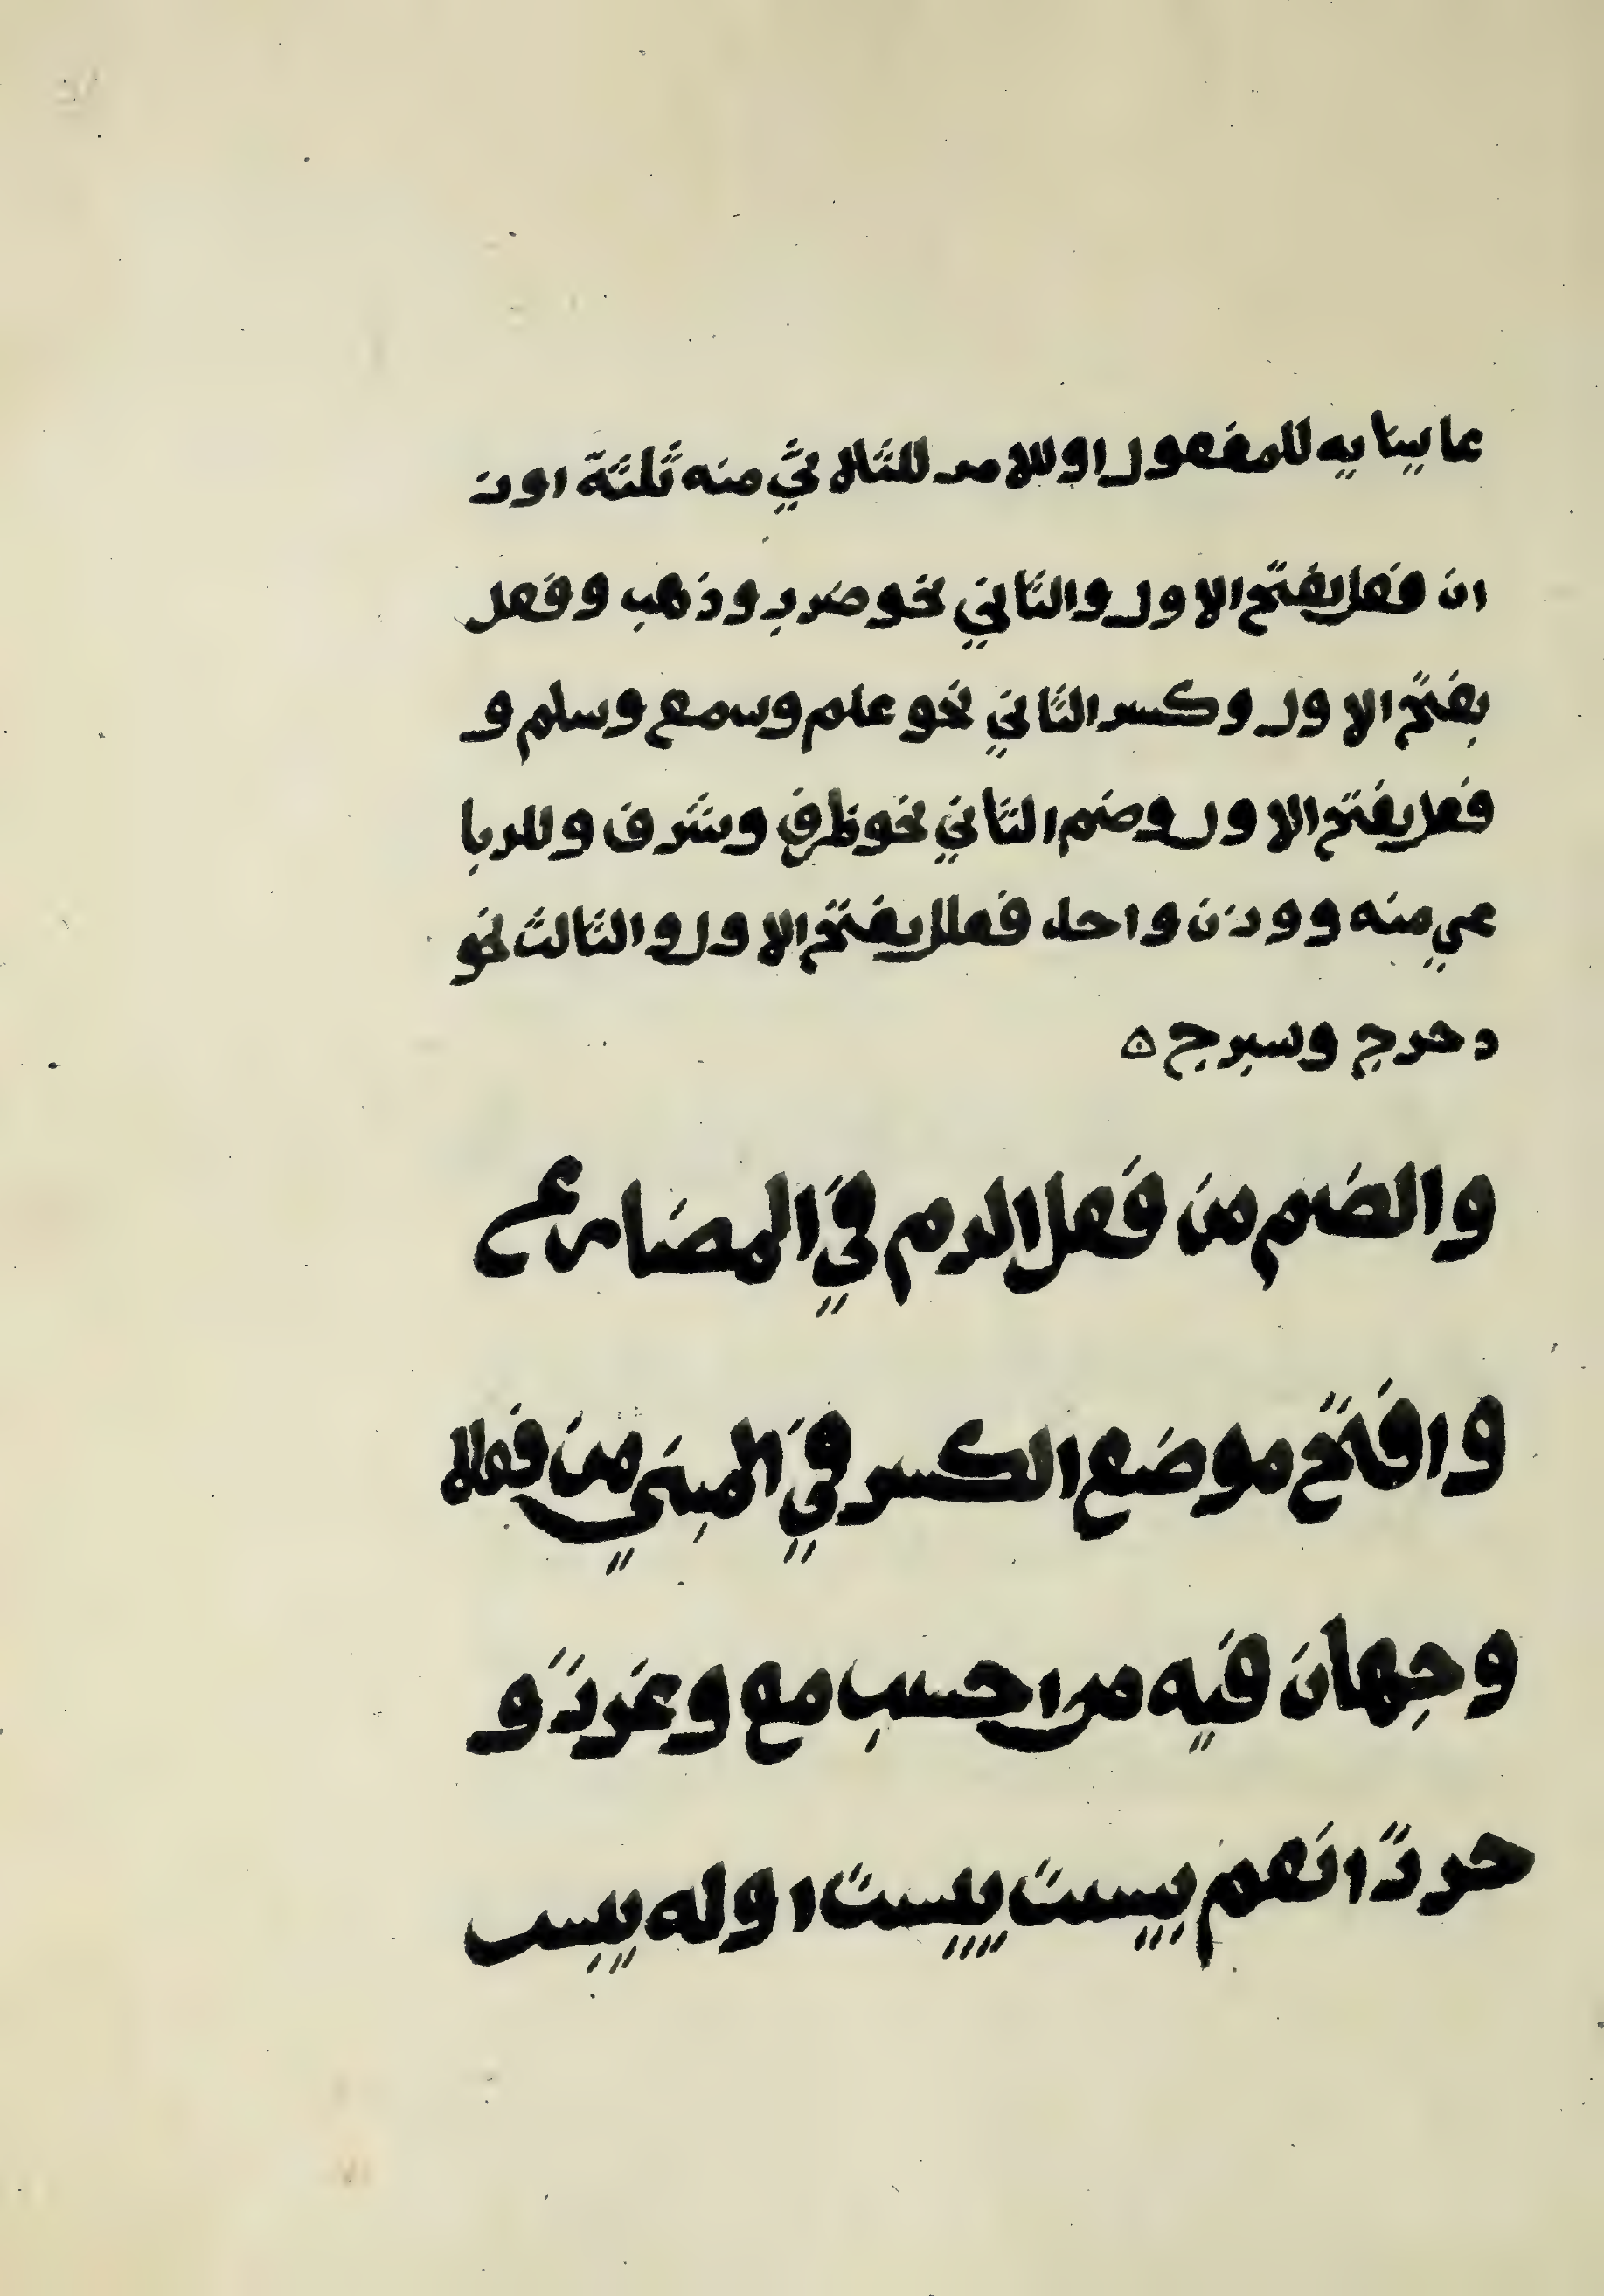 عما بينايه للمفعول او للامر للثلاثي منه ثلثة اوز
ان فعل بفتح الاول والثاني نحو ضرب وذهب وفعل
بفتح الاول وكسر الثاني نحو علم وسمع وسلم و
فعل بفتح الاول وضم الثاني نحو ظرف وشرف وللربا
عي منه ووزن واحد فعلل بفتح الاول والثالث نحو
دحرج وسبرج ه
والضم من فعل الزم في المضارع
وافتح موضع الكسر في المبني من فعلا
وجهان فيه من احسب مع وغرت و
حرت انعم بيست ييست اوله يبس